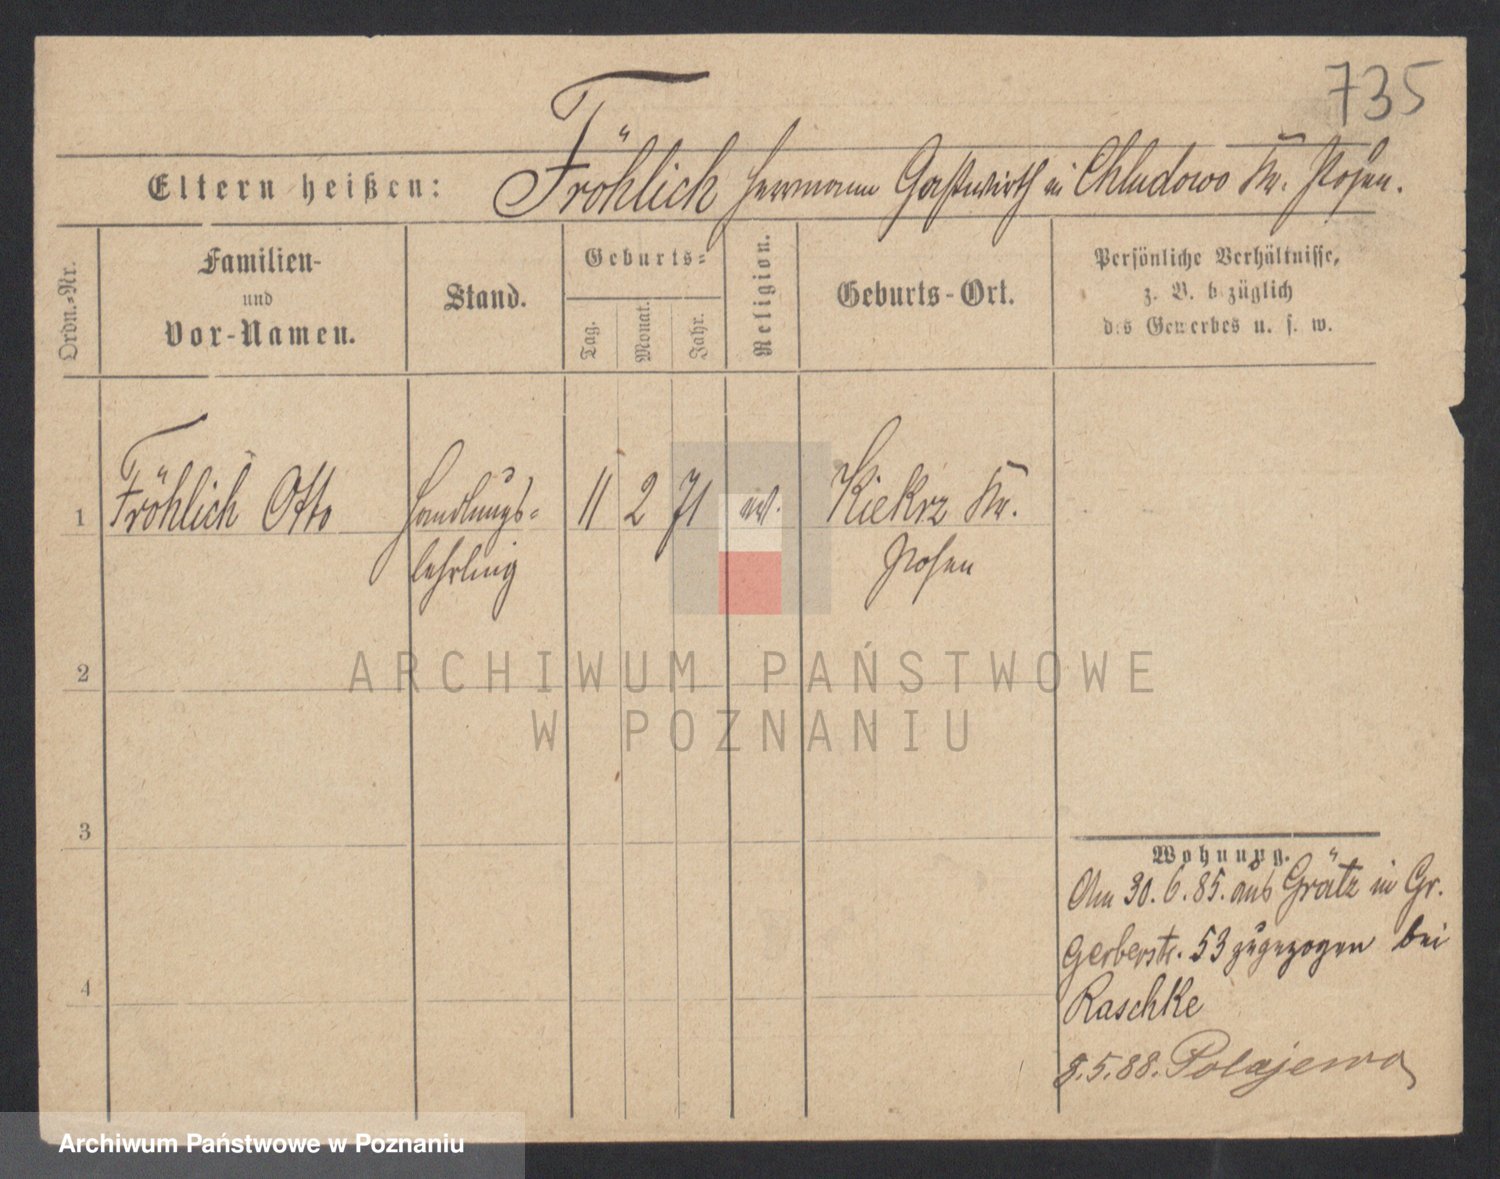 735
Eltern heißen: Fröhlich Hermann Gastwirth in Chludowo Kr. Posen.
Ordn.-Nr.
Familien-
und
Vor-Namen.
Stand.
Geburts-
Tag.
Monat.
Jahr.
Religion.
Geburts-Ort.
Persönliche Verhältnisse,
z. B. bezüglich
des Gewerbes u. s. w.
1 Fröhlich Otto Handlungs- 11 2 71 ev. Kiekrz Kr.
lehrling Posen
2
3
4
Wohnung.
Am 30. 6. 85. aus Grätz in Gr.
Gerberstr. 53 zugezogen bei
Raschke
8.5.88. Polajewo
ARCHIWUM PAŃSTWOWE
W POZNANIU
Archiwum Państwowe w Poznaniu